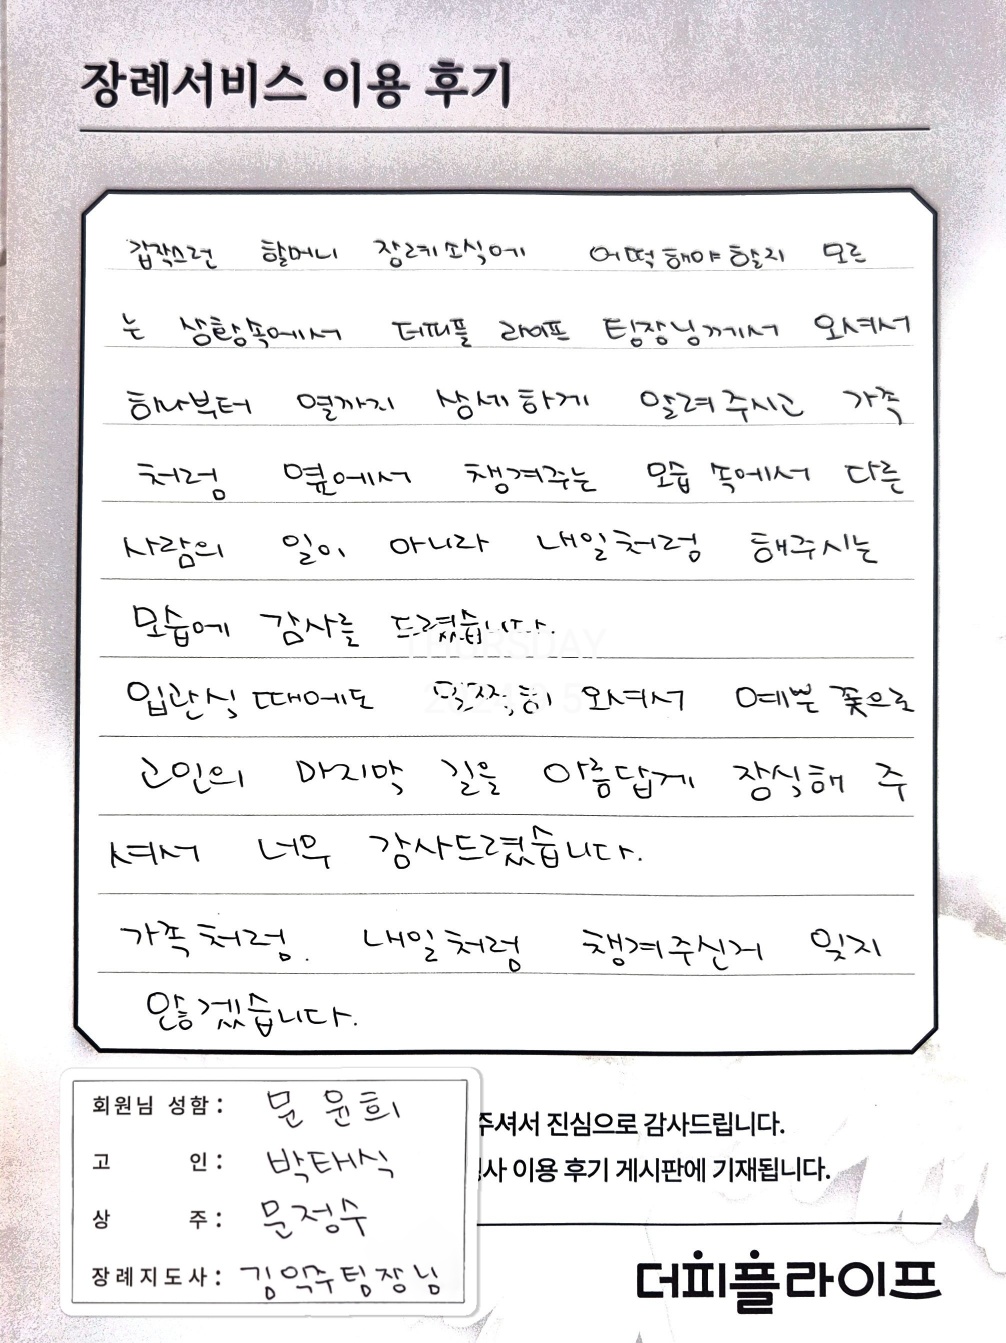 장례서비스 이용 후기
갑작스런 할머니 장례소식에 어떡해야할지 모르
는 상황속에서 더피플 라이프 팀장님께서 오셔서
하나부터 열까지 상세하게 알려주시고 가족
처럼 옆에서 챙겨주는 모습 속에서 다른
사람의 일이 아니라 내일처럼 해주시는
모습에 감사를 드렸습니다.
THURSDAY
입관식 때에도 오셔서 예쁜 꽃으로
고인의 마지막 길을 아름답게 장식해 주
셔서 너무 감사드렸습니다.
가족처럼. 내일처럼 챙겨주신거 잊지
않겠습니다.
회원님 성함 : 문윤희
주셔서 진심으로 감사드립니다.
고 인 : 박태식
사 이용 후기 게시판에 기재됩니다.
상 주 : 문정수
장례지도사 : 김익수팀장님
더피플라이프